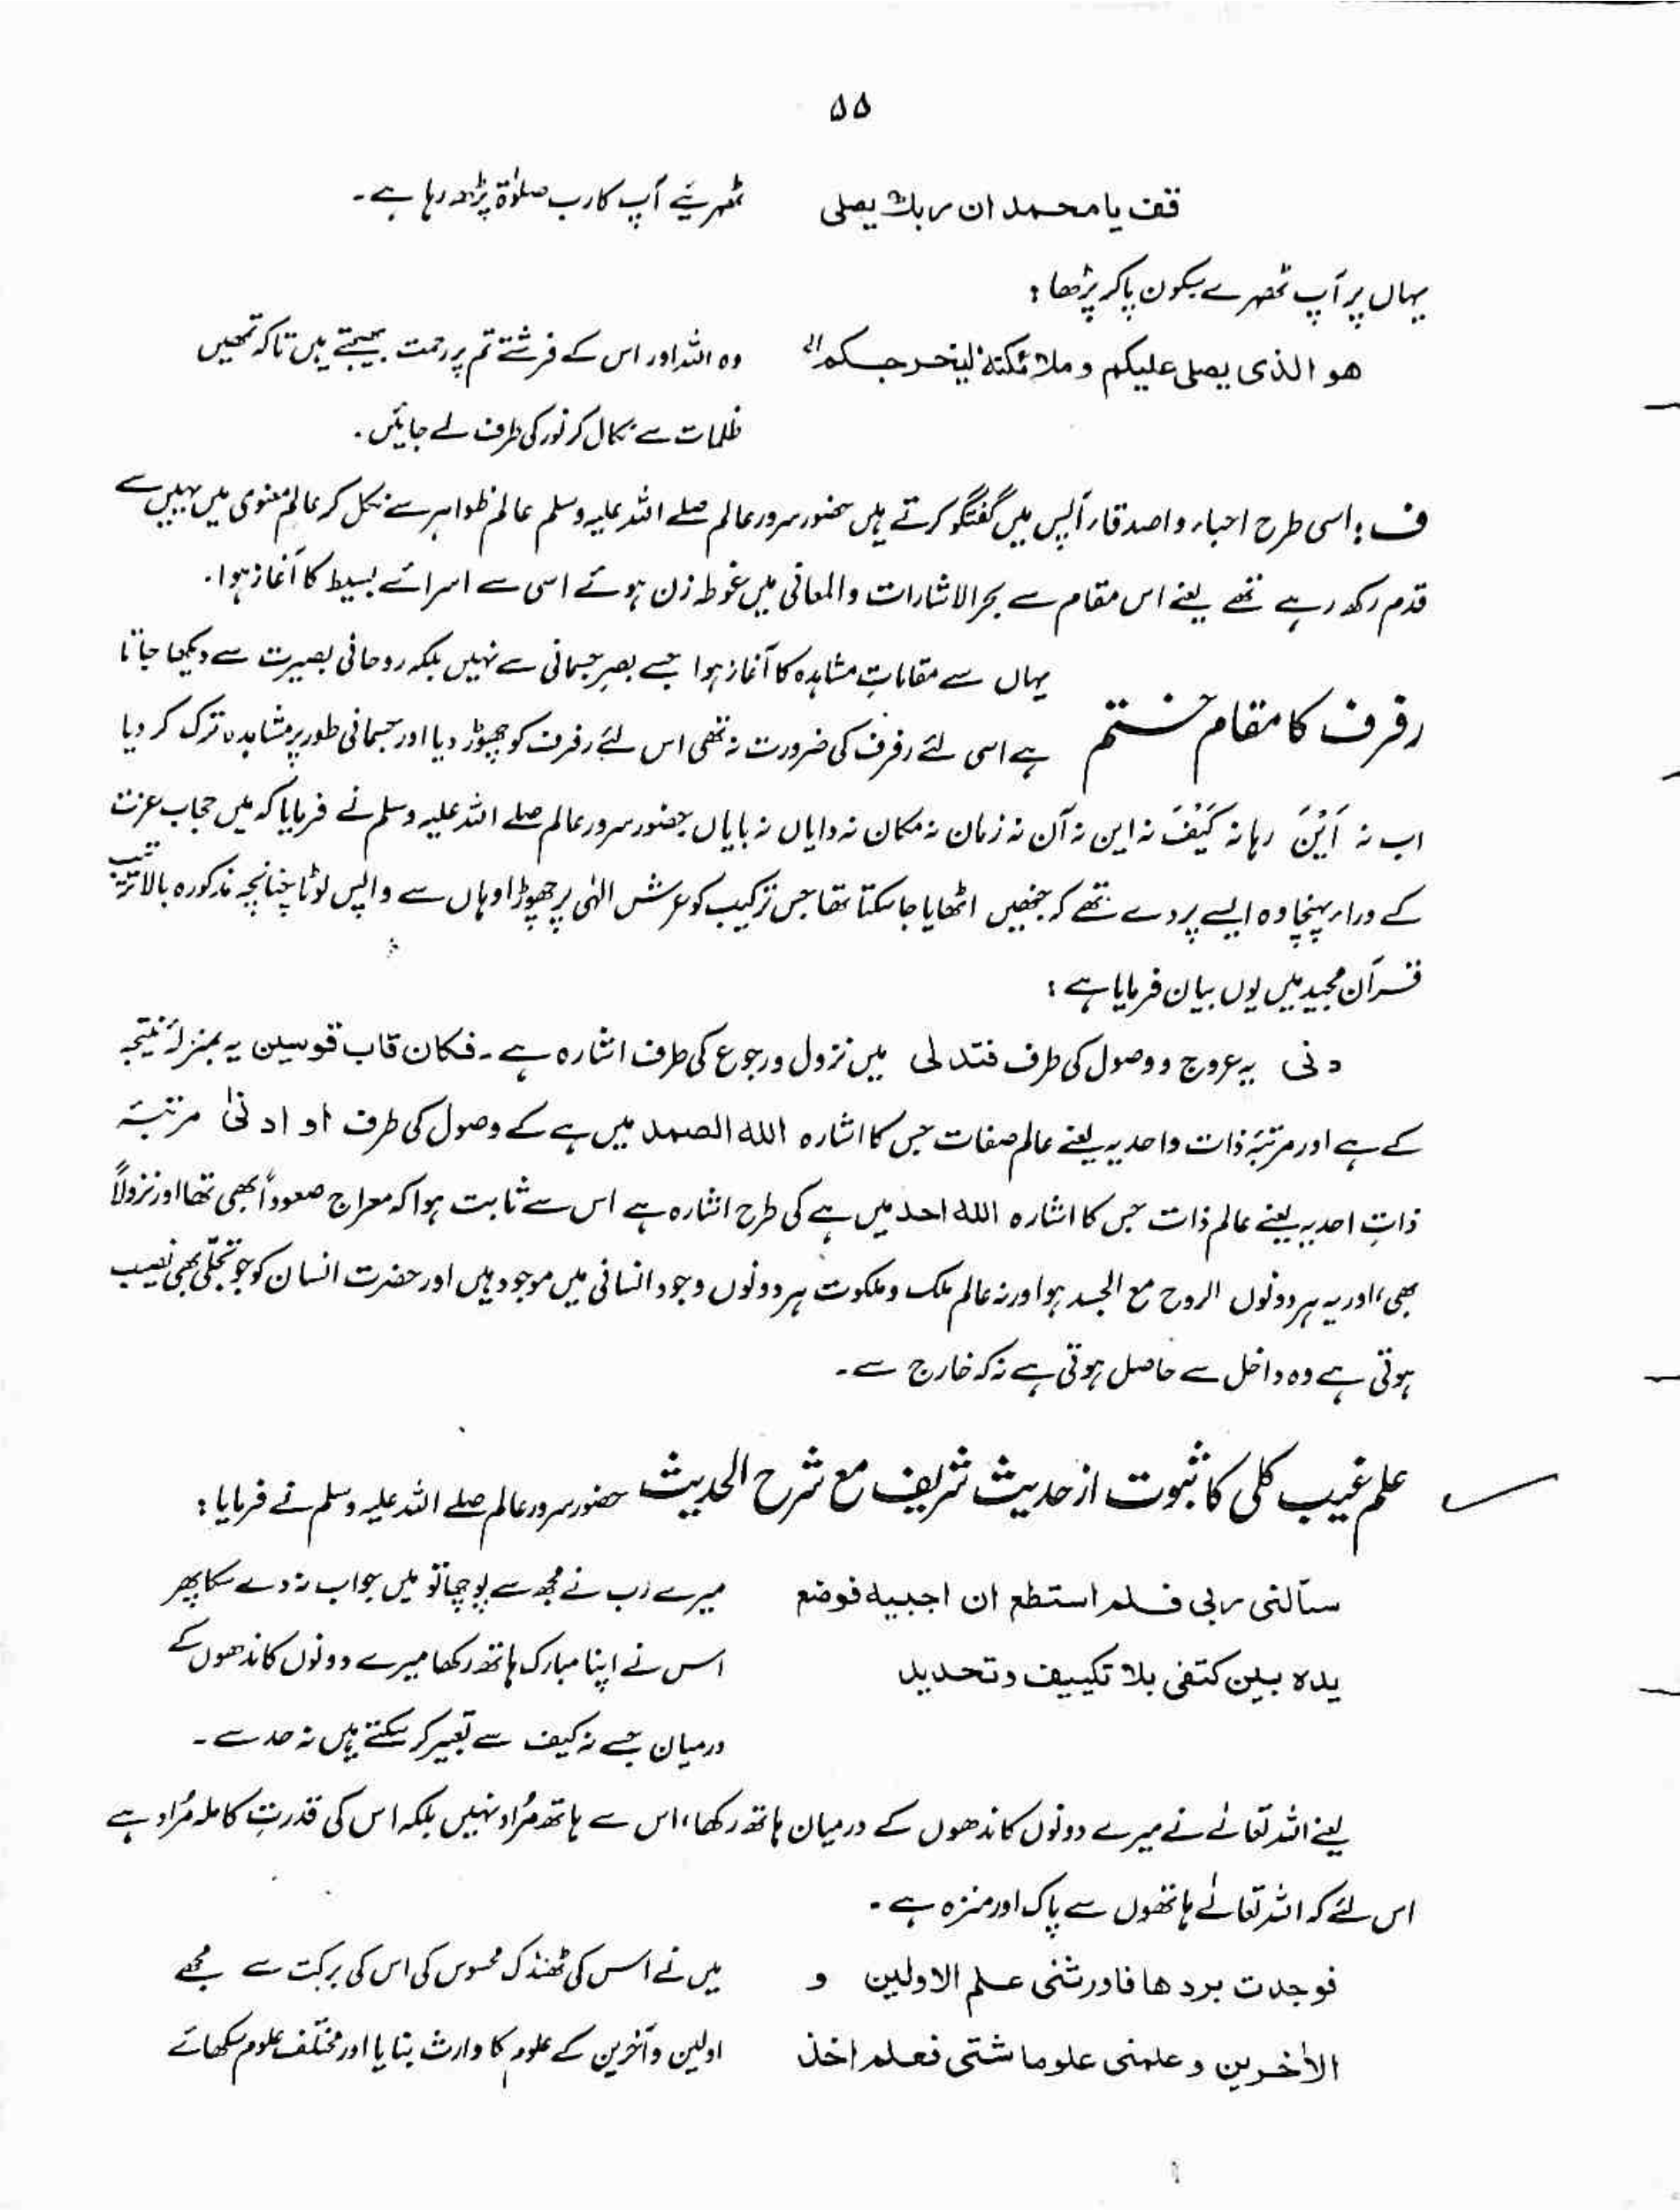 ۵۵
قف یا محمد ان ربك یصلی ٹھہریئے آپ کا رب صلوٰۃ پڑھ رہا ہے۔
یہاں پر آپ ٹھہرے سکون پا کر پڑھا :
ھو الذی یصلی علیکم و ملائکتہ لیخرجکم الٰی وہ اللہ اور اس کے فرشتے تم پر رحمت بھیجتے ہیں تاکہ تمھیں
ظلمات سے نکال کر نور کی طرف لے جائیں۔
ف : اسی طرح احباء و اصدقاء آپس میں گفتگو کرتے ہیں حضور سرور عالم صلے اللہ علیہ وسلم عالم ظواہر سے نکل کر عالم معنوی میں یہیں سے
قدم رکھ رہے تھے یعنے اس مقام سے بحر الاشارات والمعانی میں غوطہ زن ہوئے اسی سے اسرائے بسیط کا آغاز ہوا۔
یہاں سے مقاماتِ مشاہدہ کا آغاز ہوا جسے بصرِ جسمانی سے نہیں بلکہ روحانی بصیرت سے دیکھا جاتا
رفرف کا مقام ختم ہے اسی لئے رفرف کی ضرورت نہ تھی اس لئے رفرف کو چھوڑ دیا اور جسمانی طور پر مشاہدہ ترک کر دیا
اب نہ اَیْنَ رہا نہ کَیْفَ نہ این نہ آن نہ زمان نہ مکان نہ دایاں نہ بایاں حضور سرور عالم صلے اللہ علیہ وسلم نے فرمایا کہ میں حجاب عزت
کے وراء پہنچا وہ ایسے پردے تھے کہ جنھیں اٹھایا جا سکتا تھا جس ترکیب کو عرش الٰہی پر چھوڑا وہاں سے واپس لوٹا چنانچہ مذکورہ بالا ترتیب
قرآن مجید میں یوں بیان فرمایا ہے :
دنی یہ عروج و وصول کی طرف فتدلی میں نزول و رجوع کی طرف اشارہ ہے۔ فکان قاب قوسین یہ بمنزلۂ نتیجہ
کے ہے اور مرتبۂ ذات واحدیہ یعنے عالم صفات جس کا اشارہ الله الصمد میں ہے کے وصول کی طرف او ادنیٰ مرتبۂ
ذاتِ احدیہ یعنے عالم ذات جس کا اشارہ الله احد میں ہے کی طرح اشارہ ہے اس سے ثابت ہوا کہ معراج صعوداً بھی تھا اور نزولاً
بھی، اور یہ ہر دونوں الروح مع الجسد ہوا ورنہ عالم ملک و ملکوت ہر دونوں وجود انسانی میں موجود ہیں اور حضرت انسان کو جو تجلّی بھی نصیب
ہوتی ہے وہ داخل سے حاصل ہوتی ہے نہ کہ خارج سے۔
علم غیب کلی کا ثبوت از حدیث شریف مع شرح الحدیث حضور سرور عالم صلے اللہ علیہ وسلم نے فرمایا :
سألنی ربی فلم استطع ان اجیبہ فوضع میرے رب نے مجھ سے پوچھا تو میں جواب نہ دے سکا پھر
یدہ بین کتفی بلا تکییف و تحدید اس نے اپنا مبارک ہاتھ رکھا میرے دونوں کاندھوں کے
درمیان جسے نہ کیف سے تعبیر کر سکتے ہیں نہ حد سے۔
یعنے اللہ تعالٰے نے میرے دونوں کاندھوں کے درمیان ہاتھ رکھا، اس سے ہاتھ مُراد نہیں بلکہ اس کی قدرتِ کاملہ مُراد ہے
اس لئے کہ اللہ تعالٰے ہاتھوں سے پاک اور منزہ ہے۔
فوجدت بردھا فاورثنی علم الاولین و میں نے اس کی ٹھنڈک محسوس کی اس کی برکت سے مجھے
الاٰخرین و علمنی علوما شتی فعلم اخذ اولین و آخرین کے علوم کا وارث بنایا اور مختلف علوم سکھائے